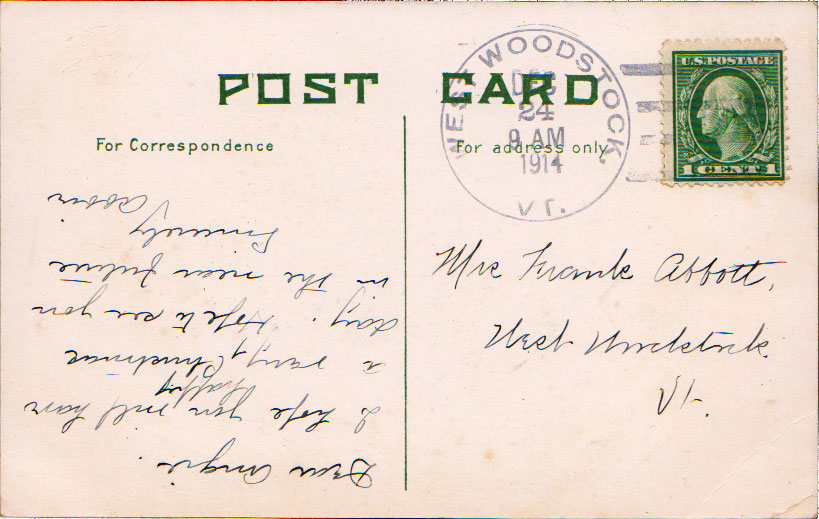 POST CARD
For Correspondence
For address only
WEST WOODSTOCK,
DEC
24
9 AM
1914
VT.
U.S. POSTAGE
1 CENT 1
Dear Angie.
I hope you will have
a very happy Christmas
day. Hope to see you
in the near future
Sincerely
Mrs Frank Abbott,
West Woodstock
Vt.